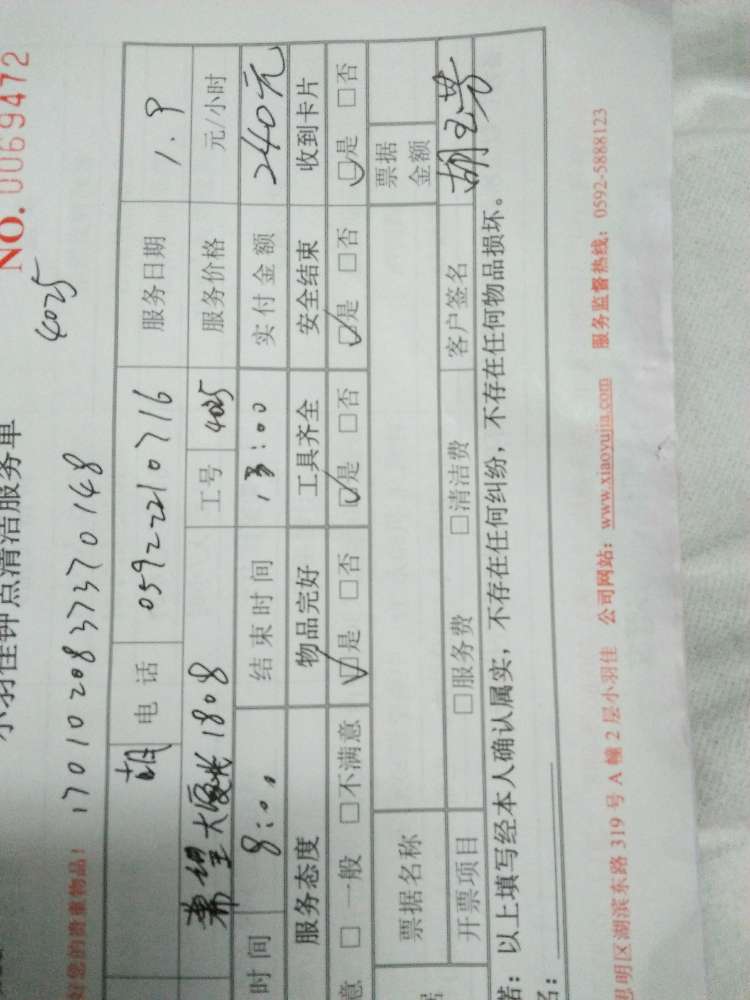 小羽佳钟点清洁服务单
NO. 0069472
好您的贵重物品！ 17010208373370148 4025
胡 电 话 05922210716 服务日期 1.9
希望大厦 1808 工号 4025 服务价格 元/小时
时间 8:00 结束时间 13:00 实付金额 240元
服务态度 物品完好 工具齐全 安全结束 收到卡片
意 □ 一般 □不满意 □是 □否 □是 □否 □是 □否 □是 □否
票据名称 票据金额
开票项目 □服务费 □清洁费 客户签名 胡玉芳
诺：以上填写经本人确认属实，不存在任何纠纷，不存在任何物品损坏。
名：
思明区湖滨东路 319 号 A 幢 2 层小羽佳 公司网站：www.xiaoyujia.com 服务监督热线：0592-5888123